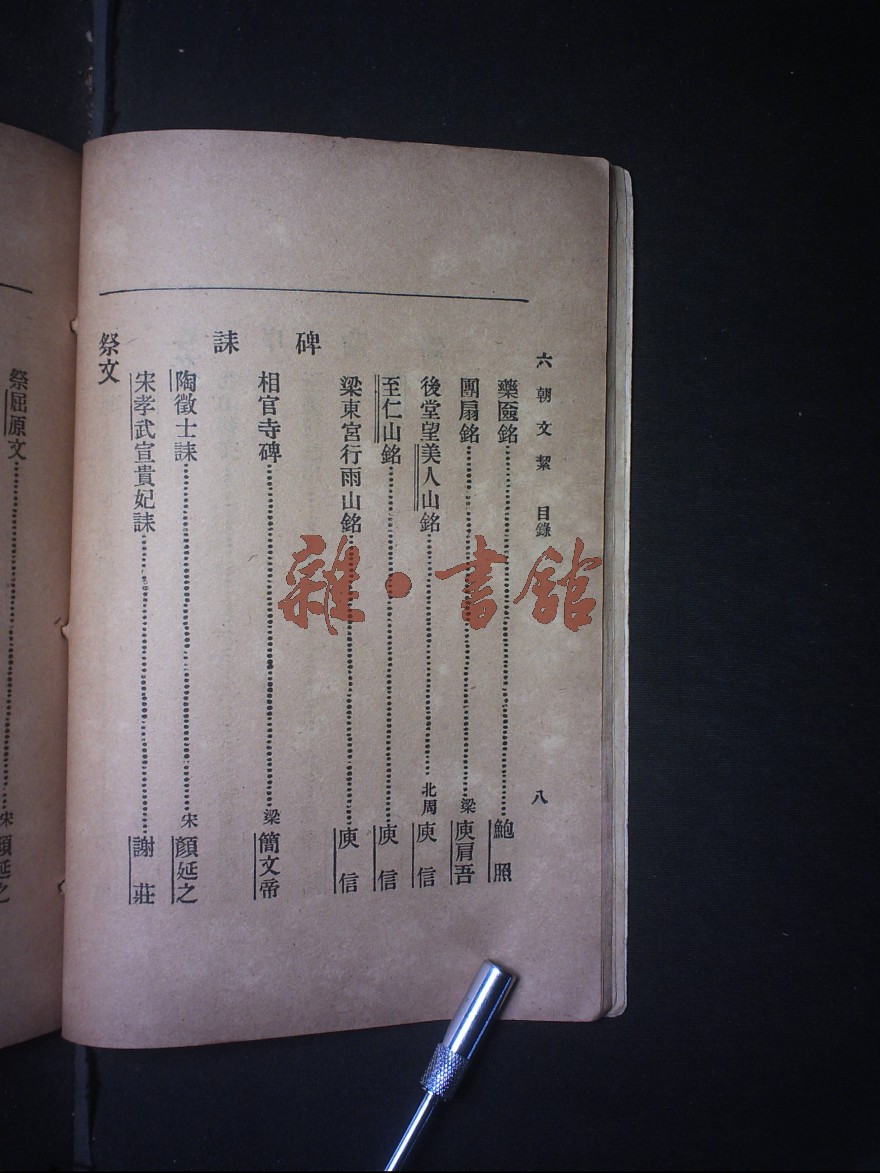 六朝文絜 目錄 八
藥奩銘 鮑照
團扇銘 梁 庾肩吾
後堂望美人山銘 北周 庾信
至仁山銘 庾信
梁東宮行雨山銘 庾信
碑
相官寺碑 梁 簡文帝
誄
陶徵士誄 宋 顏延之
宋孝武宣貴妃誄 謝莊
祭文
祭屈原文 宋 顏延之
雜·書館